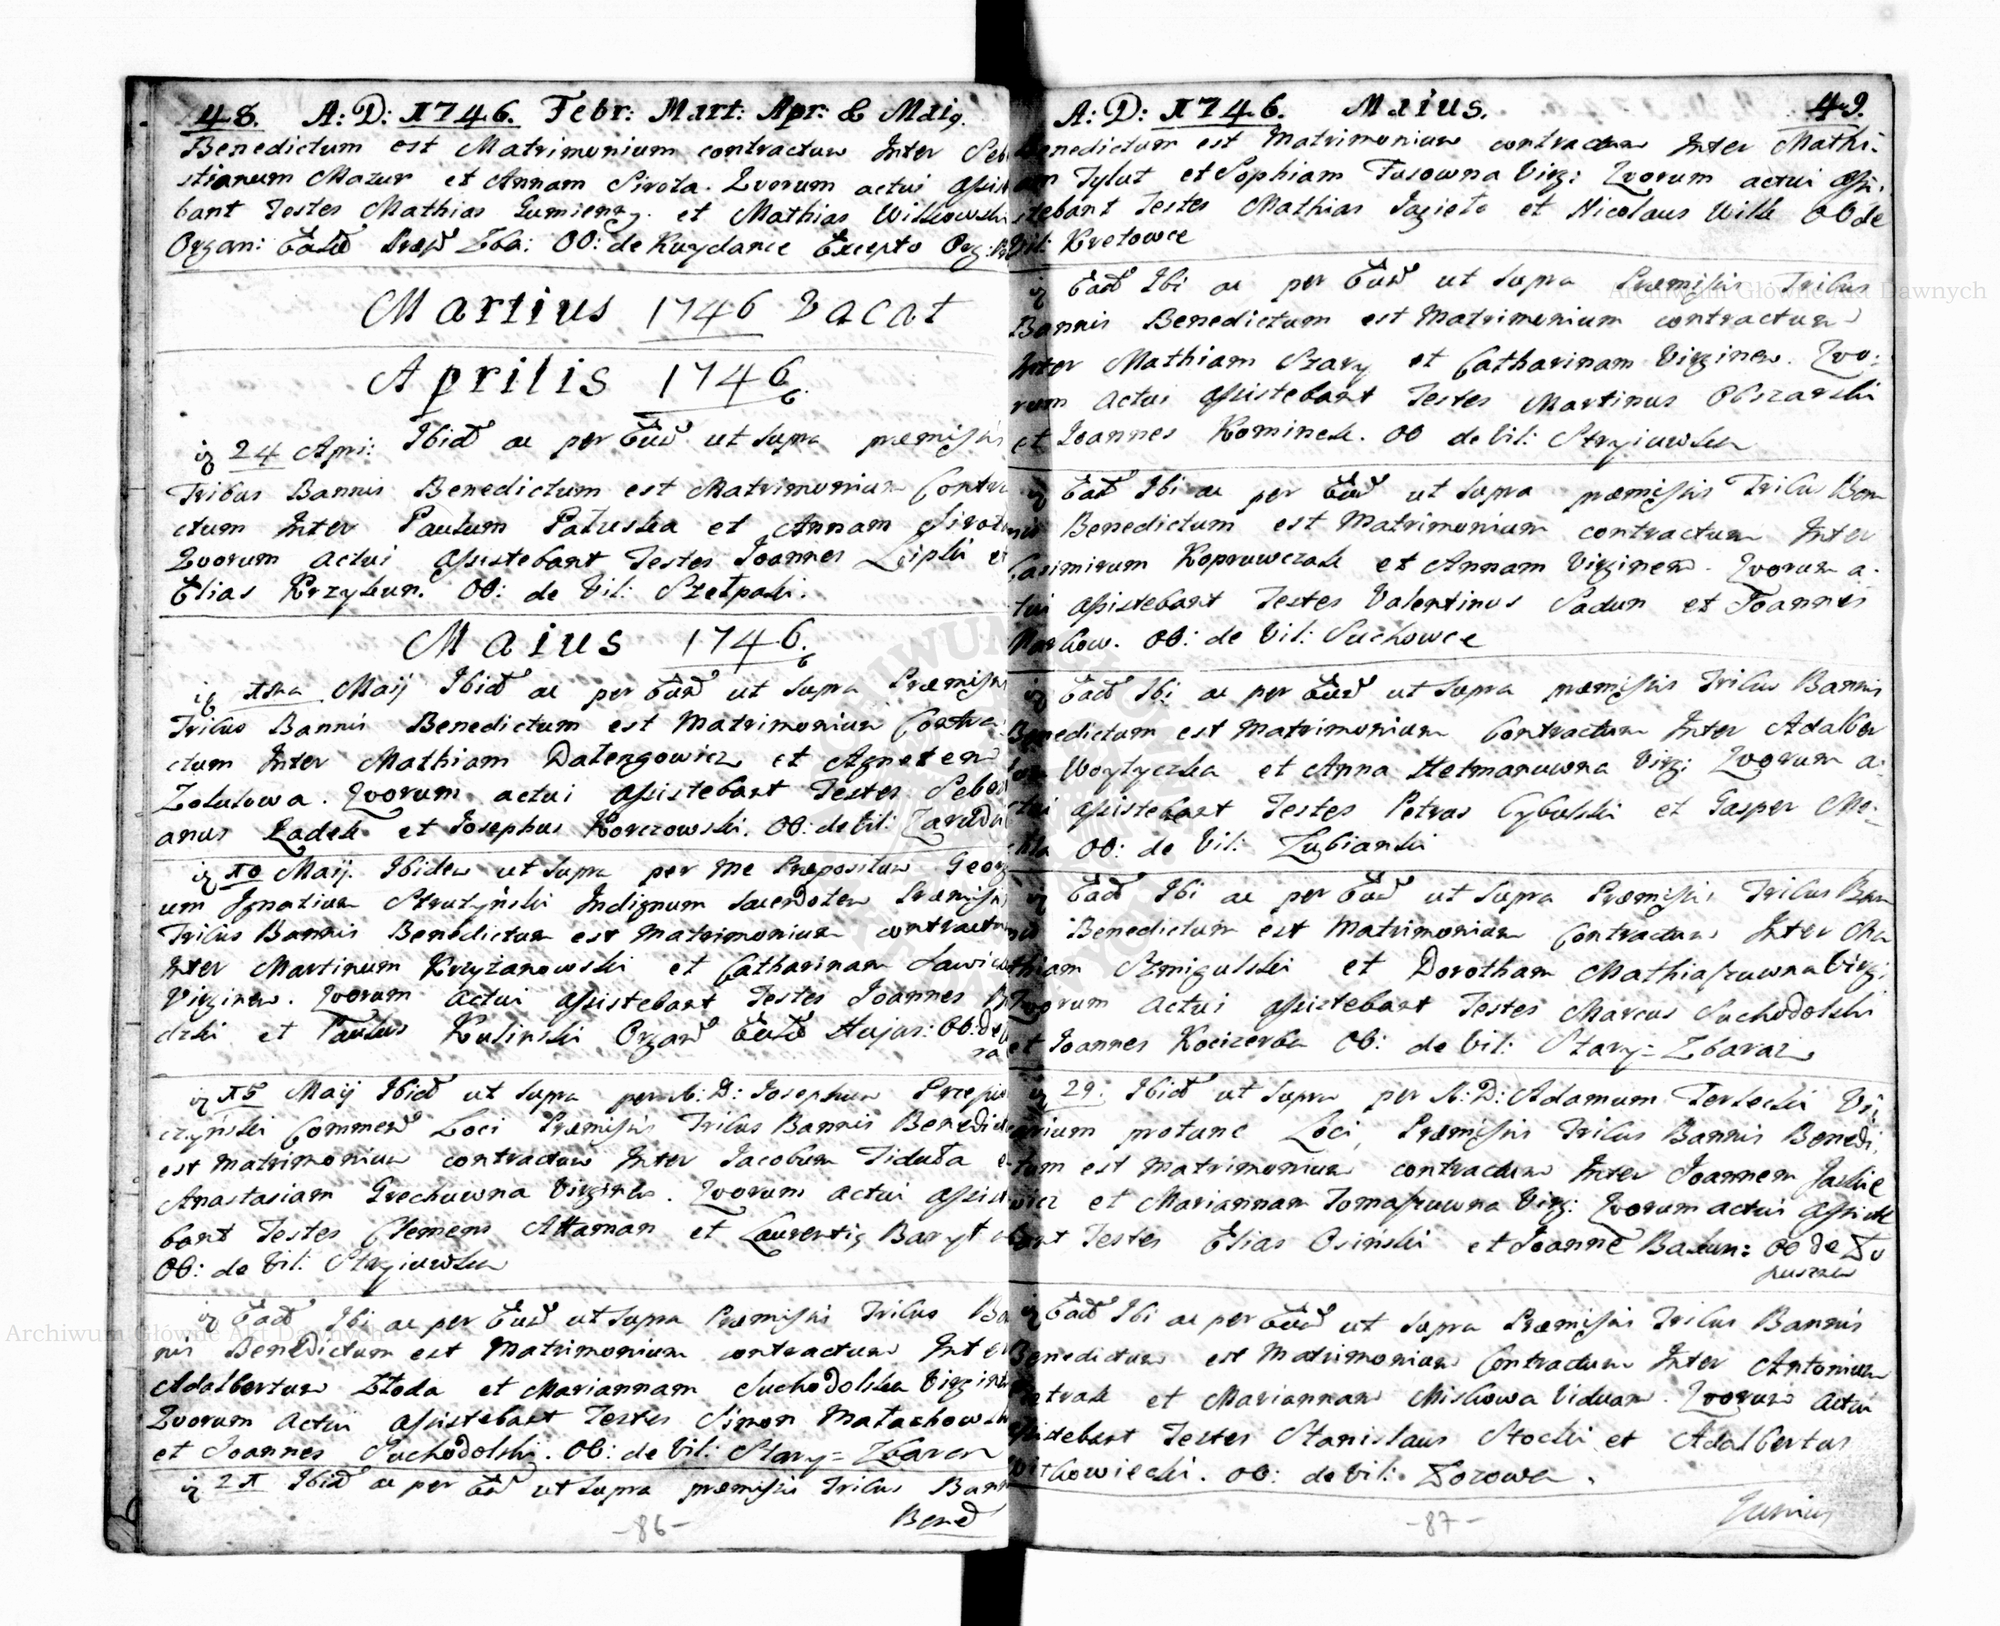 48. A: D: 1746. Febr: Mart: Apr: & Maiq.
Benedictum est Matrimonium contractum Inter Seb
stianum Mazur et Annam Sirota. Quorum actui assist
bant Testes Mathias Gumienny. et Mathias Witkowski
Organ: OO: de Kuydance Excepto Org:
Martius 1746 Vacat
Aprilis 1746.
24 Apri: Ibid ac per Eund ut supra præmissis
Tribus Bannis Benedictum est Matrimonium Contra
ctum Inter Paulum Patuska et Annam Sirota
Quorum actui assistebant Testes Joannes Lipski et
Elias Krzykun. OO: de Vil: Szelpaki.
Maius 1746.
1ma Maij Ibid ac per Eund ut supra Præmissis
Tribus Bannis Benedictum est Matrimonium Contra
ctum Inter Mathiam Datengowicz et Agnetem
Zolutowa. Quorum actui assistebant Testes Sebas
anus Ladek et Josephus Korczowski. OO: de Vil: Zarudzi
10 Maij. Ibidem ut supra per me Præpositum Georg
um Ignatium Strutyński Indignum sacerdotem Præmissis
Tribus Bannis Benedictum est Matrimonium contractum
Inter Martinum Krzyżanowski et Catharinam
Virginem. Quorum actui assistebant Testes Joannes
dzki et Paulus Kulinski Organ Eccl Hujus: OO: de
ra
15 Maij Ibid ut supra per A: D: Josephum
czyński Commend Loci Præmissis Tribus Bannis Benedict
est Matrimonium contractum Inter Jacobum Tiduła e
Anastasiam Grechuwna Virginem. Quorum actui assist
bant Testes Clemens Attaman et Laurentiq Baryt
OO: de Vil: Stryiuwka
Ead Ibi ac per Eund ut supra Præmissis Tribus Ba
nis Benedictum est Matrimonium contractum Inter
Adalbertum Błoda et Mariannam Suchodolska Virgine
Quorum actui assistebant Testes Simon Matachowski
et Joannes Suchodolski. OO: de Vil: Stary=Zbaraz
21 Ibid ac per Eund ut supra præmissis Tribus Bann
Bened
-86-
A: D: 1746. Maius. 49.
Benedictum est Matrimonium contractum Inter Mathi-
am Tylut et Sophiam Fusowna Virg: Quorum actui assi-
stebant Testes Mathias Jagieto et Nicolaus Wilk OO de
Vil: Kretowce
Ead Ibi ac per Eund ut supra Præmissis Tribus
Bannis Benedictum est Matrimonium contractum
Inter Mathiam Szary et Catharinam Virginem. Quo-
rum actui assistebant Testes Martinus Obszarski
et Joannes Kominek. OO de Vil: Stryiuwka
Ead Ibi ac per Eund ut supra præmissis Tribus Ban
nis Benedictum est Matrimonium contractum Inter
Casimirum Kopruwczak et Annam Virginem. Quorum a-
tui assistebant Testes Valentinus Sadun et Joannes
OO: de Vil: Suchowce
Ead Ibi ac per Eund ut supra præmissis Tribus Bannis
Benedictum est Matrimonium Contractum Inter Adalber
tum Woytyczka et Anna Hetmanuwna Virg: Quorum a-
ctui assistebant Testes Petrus Cybulski et Gasper Me-
OO: de Vil: Lubianki
Ead Ibi ac per Eund ut supra Præmissis Tribus Ban
nis Benedictum est Matrimonium Contractum Inter Ma
thiam Szmigulski et Dorotham Mathiaszuwna Virg:
Quorum actui assistebant Testes Marcus Suchodolski
et Joannes Kociezerba OO: de Vil: Stary=Zbaraz
29. Ibid ut supra per A: D: Adamum Terlecki Vi
carium protunc Loci, Præmissis Tribus Bannis Benedi
tum est Matrimonium contractum Inter Joannem Jaskie
wicz et Mariannam Tomaszuwna Virg: Quorum actui assiste
bant Testes Elias Osinski et Joanne Bakun: OO de Do
puszna
Ead Ibi ac per Eund ut supra Præmissis Tribus Bannis
Benedictum est Matrimonium Contractum Inter Antonium
Pietrak et Mariannam Miskowa Viduam. Quorum actui
assistebant Testes Stanislaus Stocki et Adalbertus
Witkowiecki. OO: de Vil: Dozowa.
Junius
-87-
Archiwum Główne Akt Dawnych
Archiwum Główne Akt Dawnych